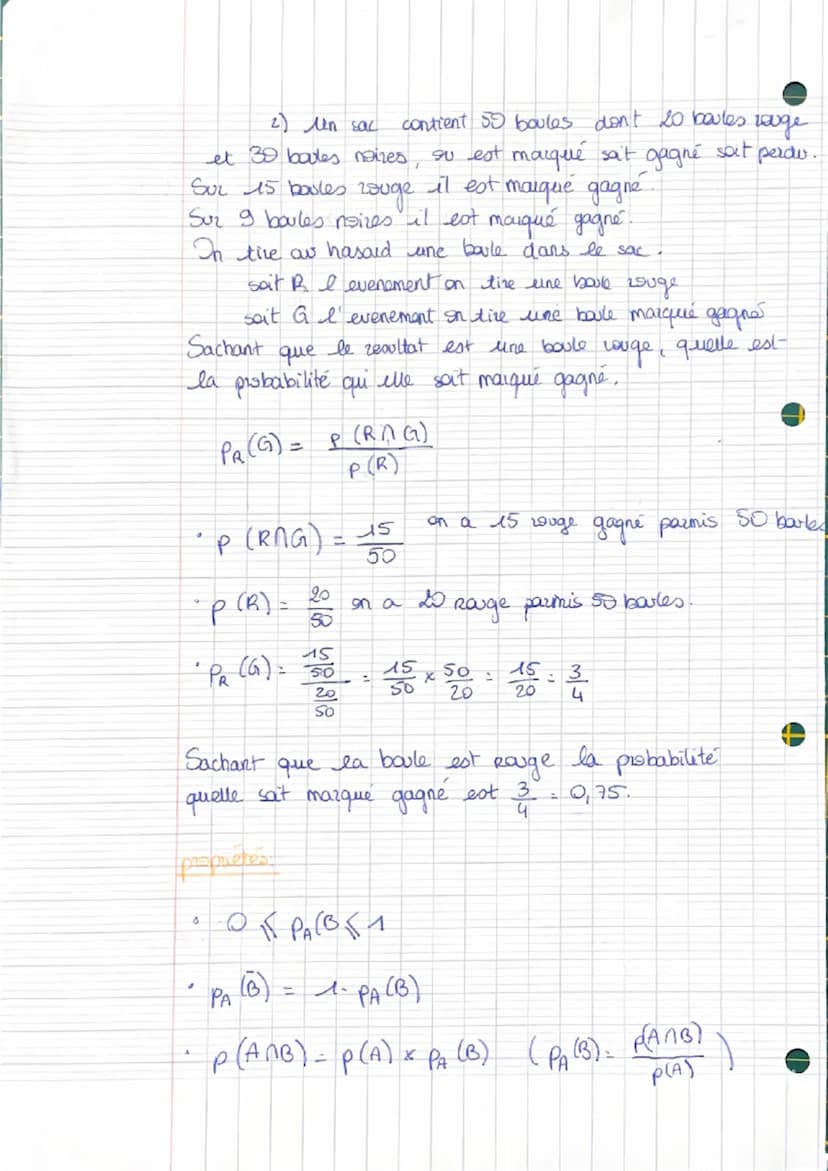 2) Un sac contient 50 boules dont 20 boules rouge
et 30 boules noires, ou est marqué soit gagné soit perdu.
Sur 15 boules rouge il est marqué gagné.
Sur 9 boules noires il est marqué gagné.
On tire au hasard une boule dans le sac.
soit R l'evenement on tire une boule rouge
soit G l'evenement on tire une boule marqué gagné
Sachant que le resultat est une boule rouge, quelle est-
la probabilité qui elle soit marqué gagné.
P_R(G) = p(R∩G) / p(R)
• p(R∩G) = 15/50 on a 15 rouge gagné parmis 50 boules
• p(R) = 20/50 on a 20 Rouge parmis 50 boules.
• P_R(G) = (15/50)/(20/50) = 15/50 × 50/20 = 15/20 = 3/4
Sachant que la boule est Rouge la probabilité
quelle soit marqué gagné est 3/4 = 0,75.
propriétés:
• 0 ⩽ P_A(B ⩽ 1
• P_A(B̄) = 1 - P_A(B)
• p(A∩B) = p(A) × P_A(B) (P_A(B) = p(A∩B)/p(A))